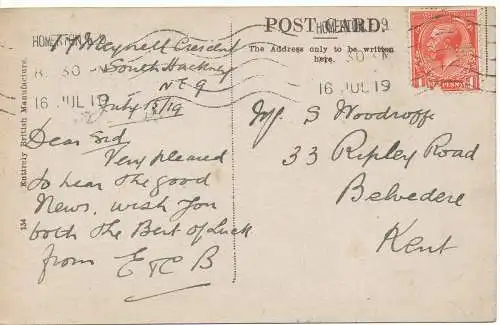 POST CARD.
The Address only to be written
here.
HOMERTON
8.30
16 JUL 19
30
16 JUL 19
Meynell Crescent
South Hackney
N E 9
July 15/19
Dear Sid
Very pleased
to hear the good
News, wish you
both the Best of Luck
from E T C B
S Woodroffe
33 Ripley Road
Belvedere
Kent
134 Entirely British Manufacture.